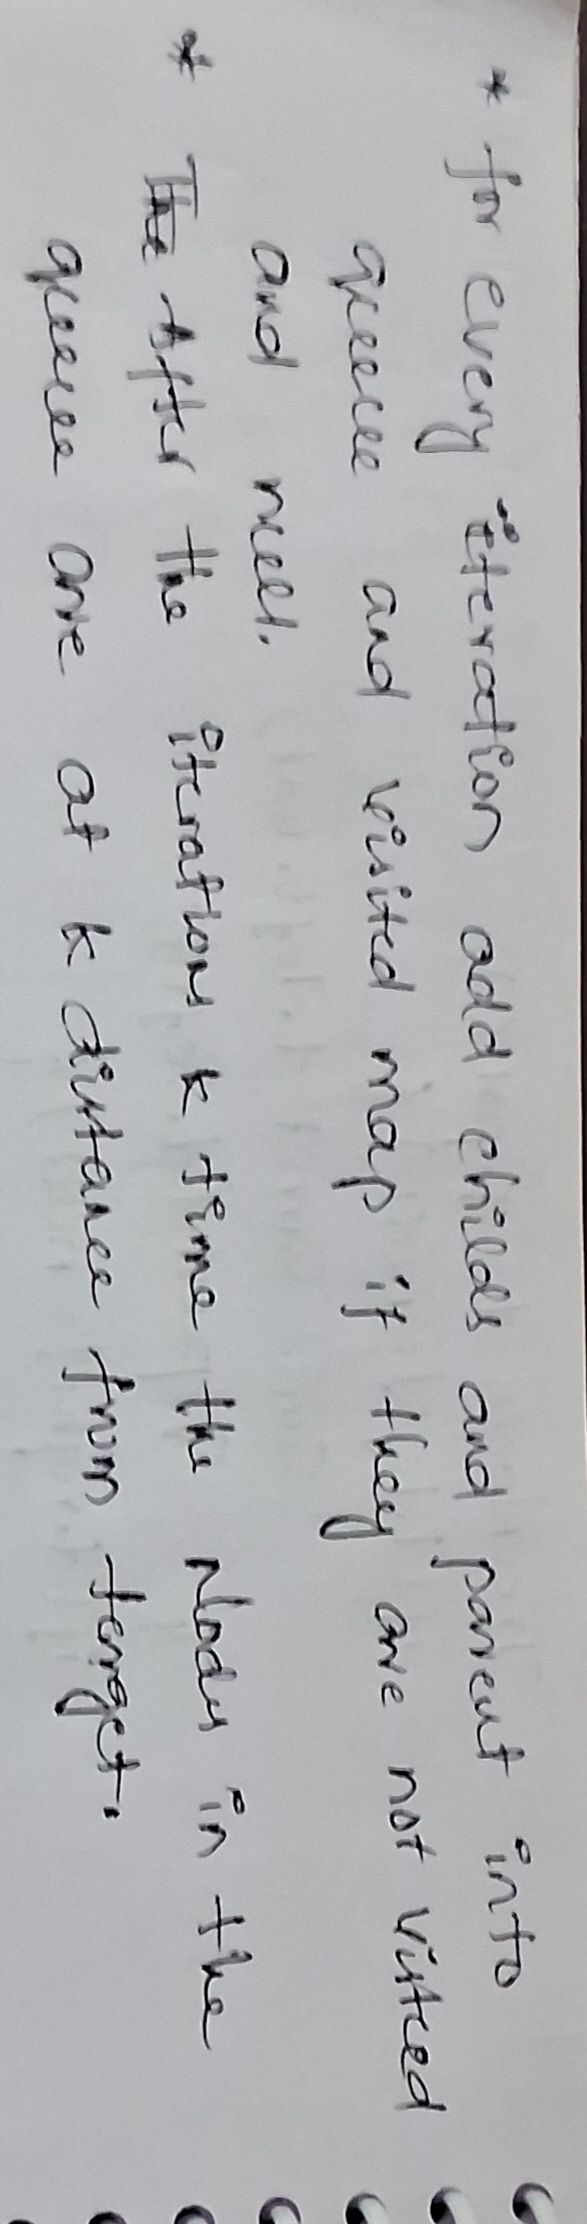 * for every iteration add childs and parent into
queue and visited map if they are not visited
and null.
* The After the iterations k time the Nodes in the
queue are at k distance from target.